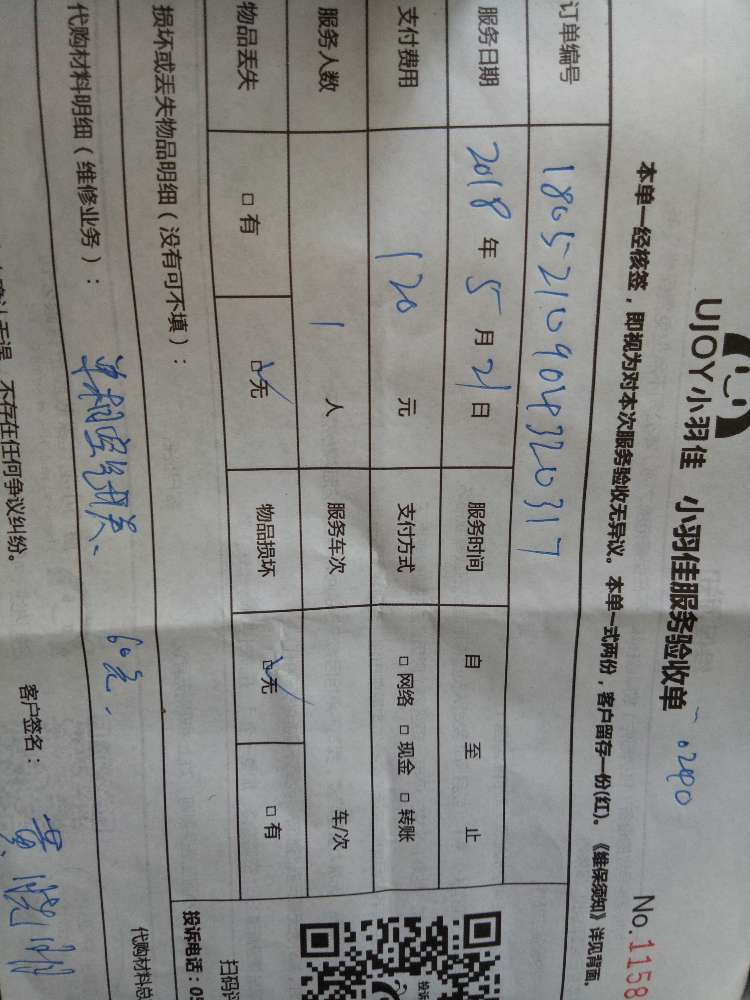 UJOY小羽佳 小羽佳服务验收单
No.1158
本单一经核签，即视为对本次服务验收无异议。本单一式两份，客户留存一份(红)。《维保须知》详见背面。
订单编号 1805210904320317
服务日期 2018年5月21日 服务时间 自 至 止
支付费用 120元 支付方式 □网络 □现金 □转账
服务人数 1人 服务车次 车/次
物品丢失 □有 ☑无 物品损坏 ☑无 □有
损坏或丢失物品明细（没有可不填）：
代购材料明细（维修业务）： 单相空气开关、 60元、
代购材料总
扫码
投诉电话：05
无误，不存在任何争议纠纷。
客户签名：